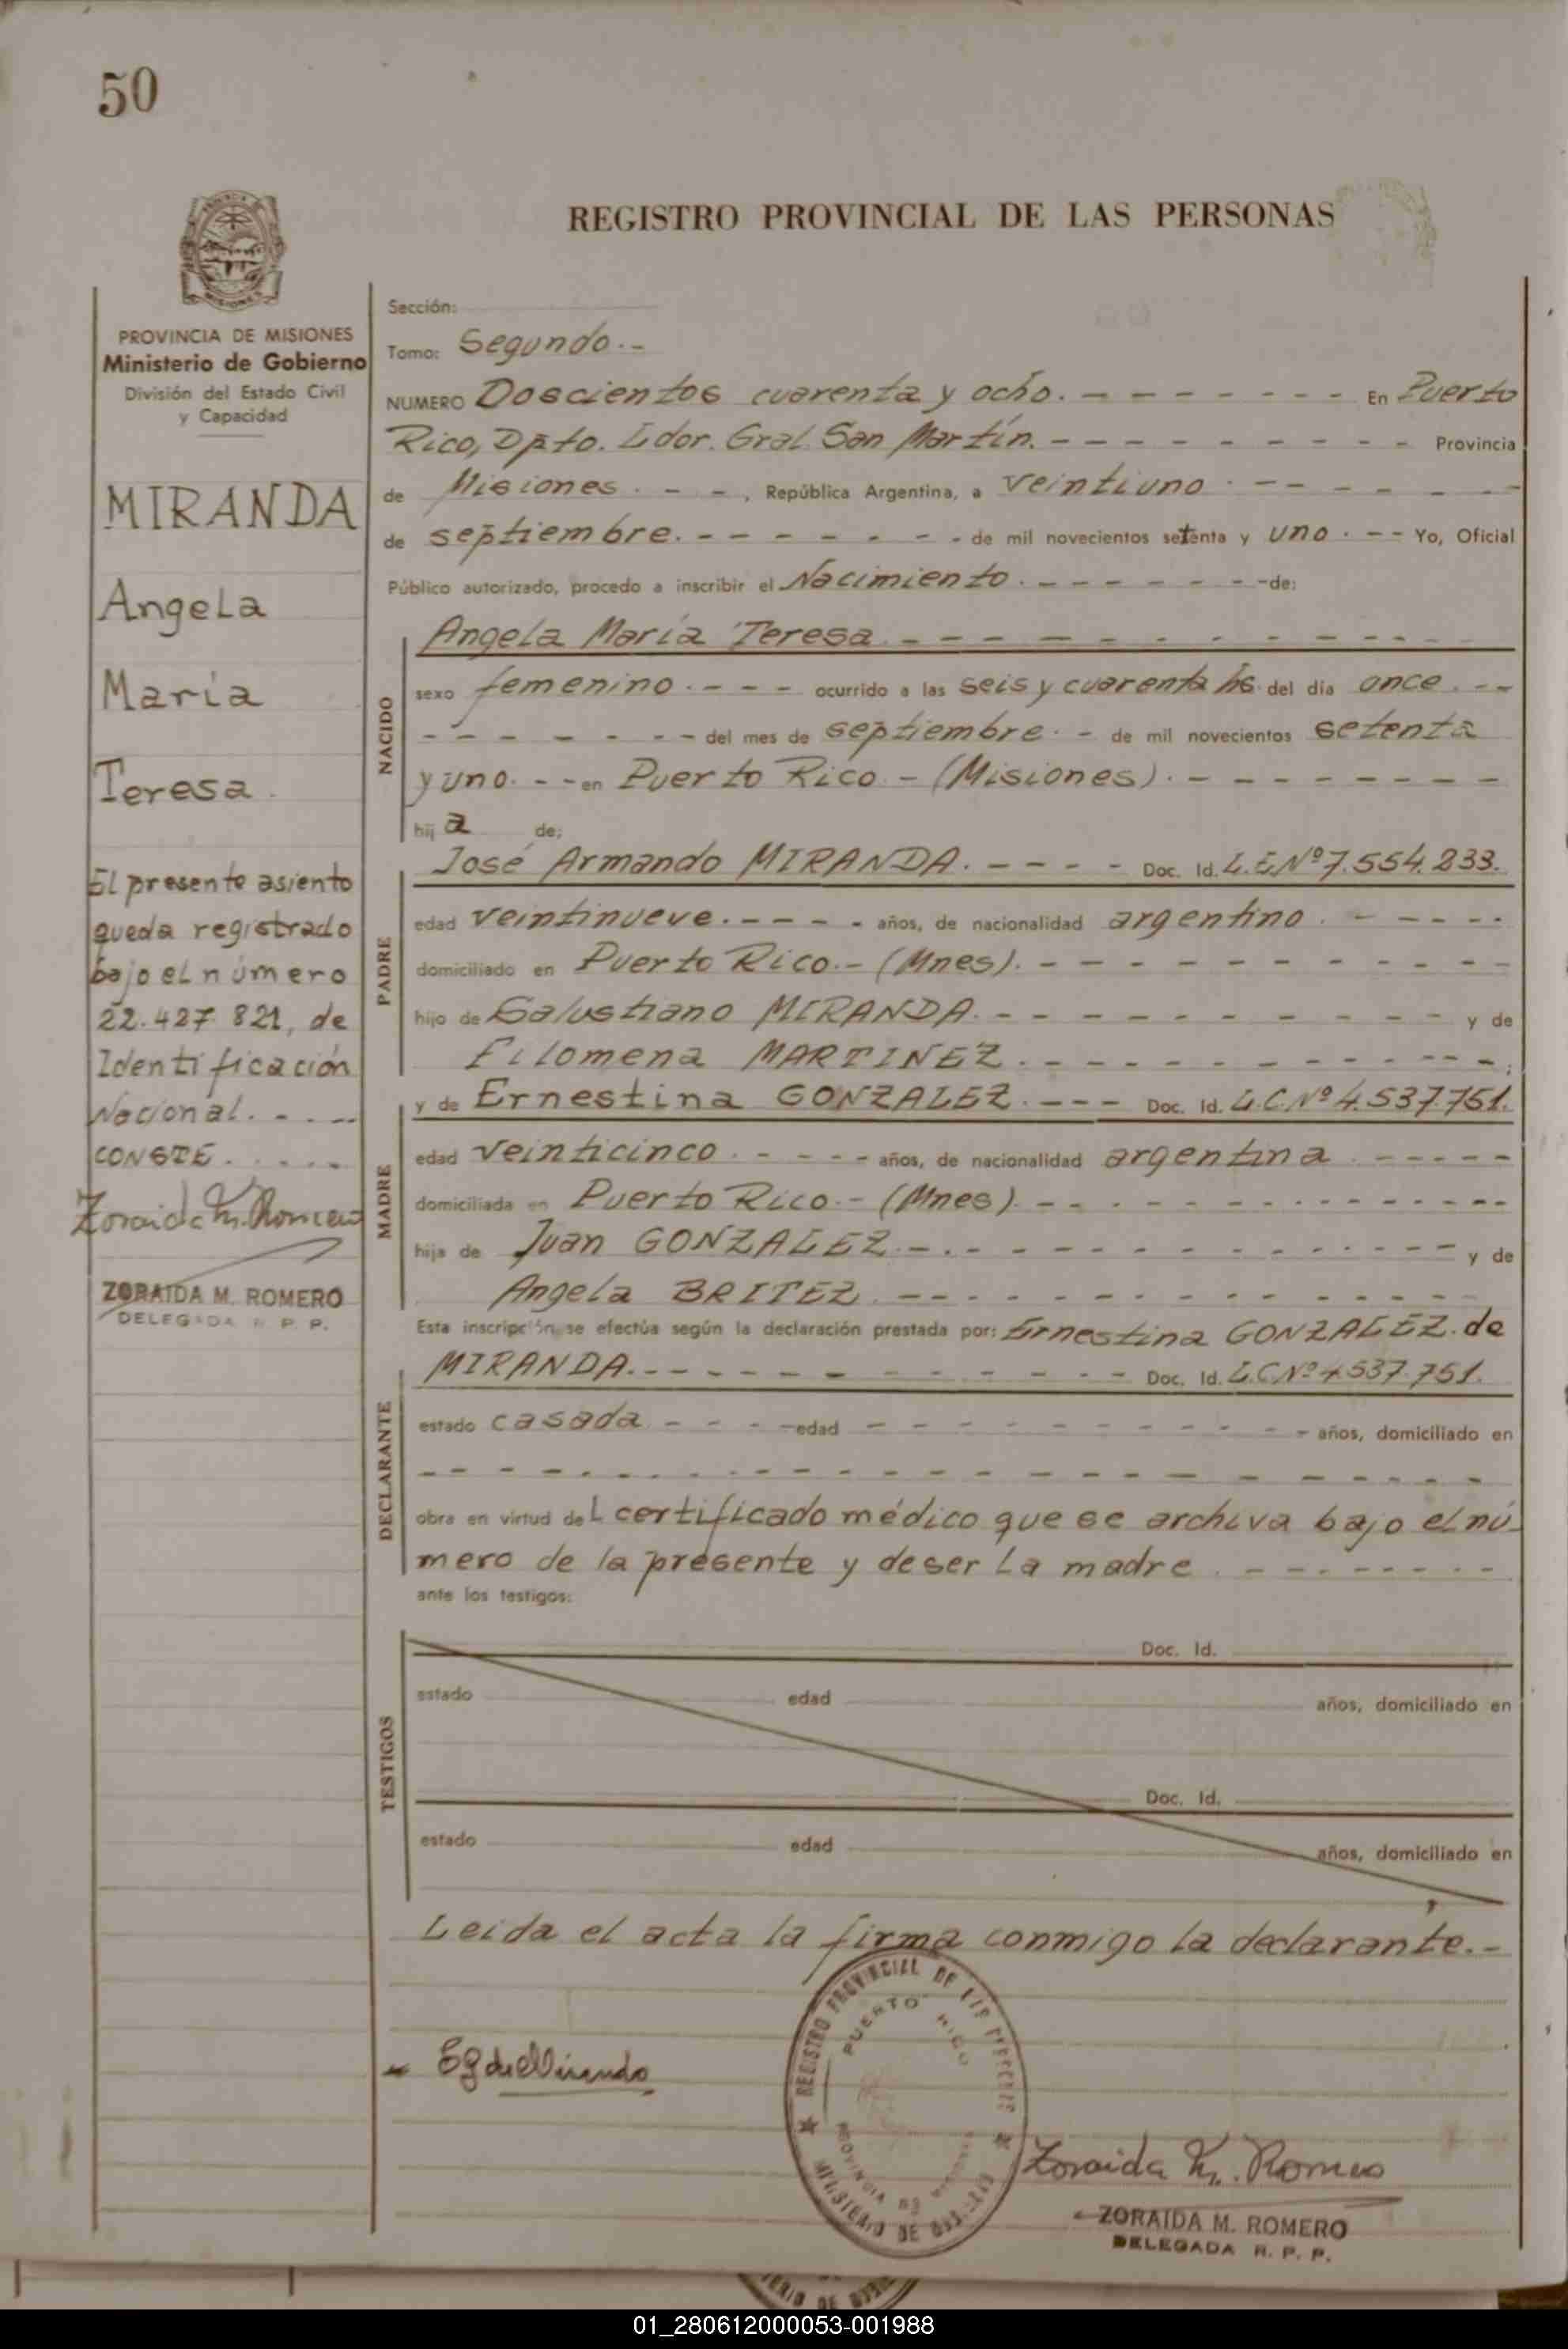 50
REGISTRO PROVINCIAL DE LAS PERSONAS
PROVINCIA DE MISIONES
Ministerio de Gobierno
División del Estado Civil
y Capacidad
MIRANDA
Angela
María
Teresa.
El presente asiento
queda registrado
bajo el número
22.427.821, de
Identificación
Nacional. - . - --
CONSTE. - - - -
Zoraida M. Romero
ZORAIDA M. ROMERO
DELEGADA R. P. P.
Sección:
Tomo: Segundo.-
NUMERO Doscientos cuarenta y ocho. - - - - - - - En Puerto
Rico, Dpto. Ldor. Gral. San Martín. - - - - - - - - - - Provincia
de Misiones. - -, República Argentina, a veintiuno. - - - - - - -
de septiembre. - - - - - - - de mil novecientos setenta y uno. - - Yo, Oficial
Público autorizado, procedo a inscribir el Nacimiento. - - - - - - - de:
NACIDO
Angela María Teresa. - - - - - - - - - - - - -
sexo femenino. - - - ocurrido a las seis y cuarenta hs. del día once. - -
- - - - - - - del mes de septiembre. - de mil novecientos setenta
y uno. - - en Puerto Rico - (Misiones). - - - - - - - -
hij a de;
PADRE
José Armando MIRANDA. - - - - Doc. Id. L.E.Nº 7.554.233.
edad veintinueve. - - - - años, de nacionalidad argentino. - - - - -
domiciliado en Puerto Rico.- (Mnes). - - - - - - - - - - -
hijo de Salustiano MIRANDA. - - - - - - - - - - - y de
Filomena MARTINEZ. - - - - - - - - - - - - ;
MADRE
y de Ernestina GONZALEZ. - - - Doc. Id. L.C.Nº 4.537.751.
edad veinticinco. - - - - - años, de nacionalidad argentina. - - - - -
domiciliada en Puerto Rico.- (Mnes). - - - - - - - - - - - -
hija de Juan GONZALEZ. - - - - - - - - - - - - - y de
Angela BRITEZ. - - - - - - - - - - - - -
Esta inscripción se efectúa según la declaración prestada por: Ernestina GONZALEZ. de
DECLARANTE
MIRANDA. - - - - - - - - - - - - Doc. Id. L.C.Nº 4.537.751.
estado casada - - - - edad - - - - - - - - - - años, domiciliado en
- - - - - - - - - - - - - - - - - - - - - - - -
obra en virtud del certificado médico que se archiva bajo el nú-
mero de la presente y de ser la madre. - - - - - - - -
ante los testigos:
TESTIGOS
Doc. Id.
estado edad años, domiciliado en
Doc. Id.
estado edad años, domiciliado en
Leída el acta la firma conmigo la declarante.-
EG de Miranda
REGISTRO PROVINCIAL DE LAS PERSONAS
PUERTO RICO
PROVINCIA DE MISIONES
MINISTERIO DE GOBIERNO
Zoraida M. Romero
ZORAIDA M. ROMERO
DELEGADA R. P. P.
01_280612000053-001988